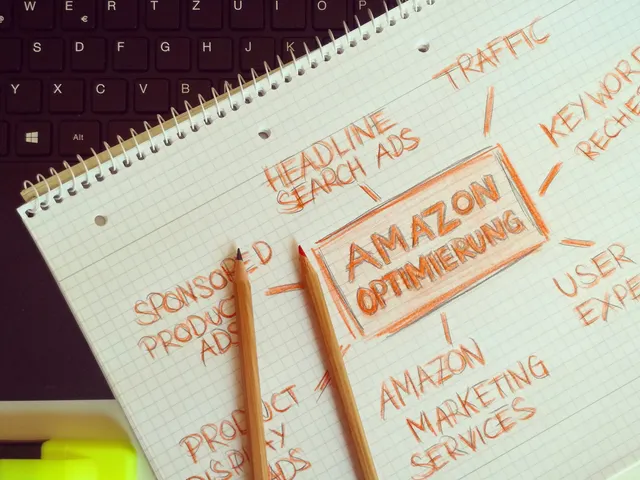 W E R T Z U I O P
€
S D F G H J K
Y X C V B
Alt
TRAFFIC
KEYWOR
RECHE
HEADLINE
SEARCH ADS
AMAZON
OPTIMIERUNG
SPONSORED
PRODUCT
ADS
USER
EXPE
AMAZON
MARKETING
SERVICES
PRODUCT
DISPLAY
ADS